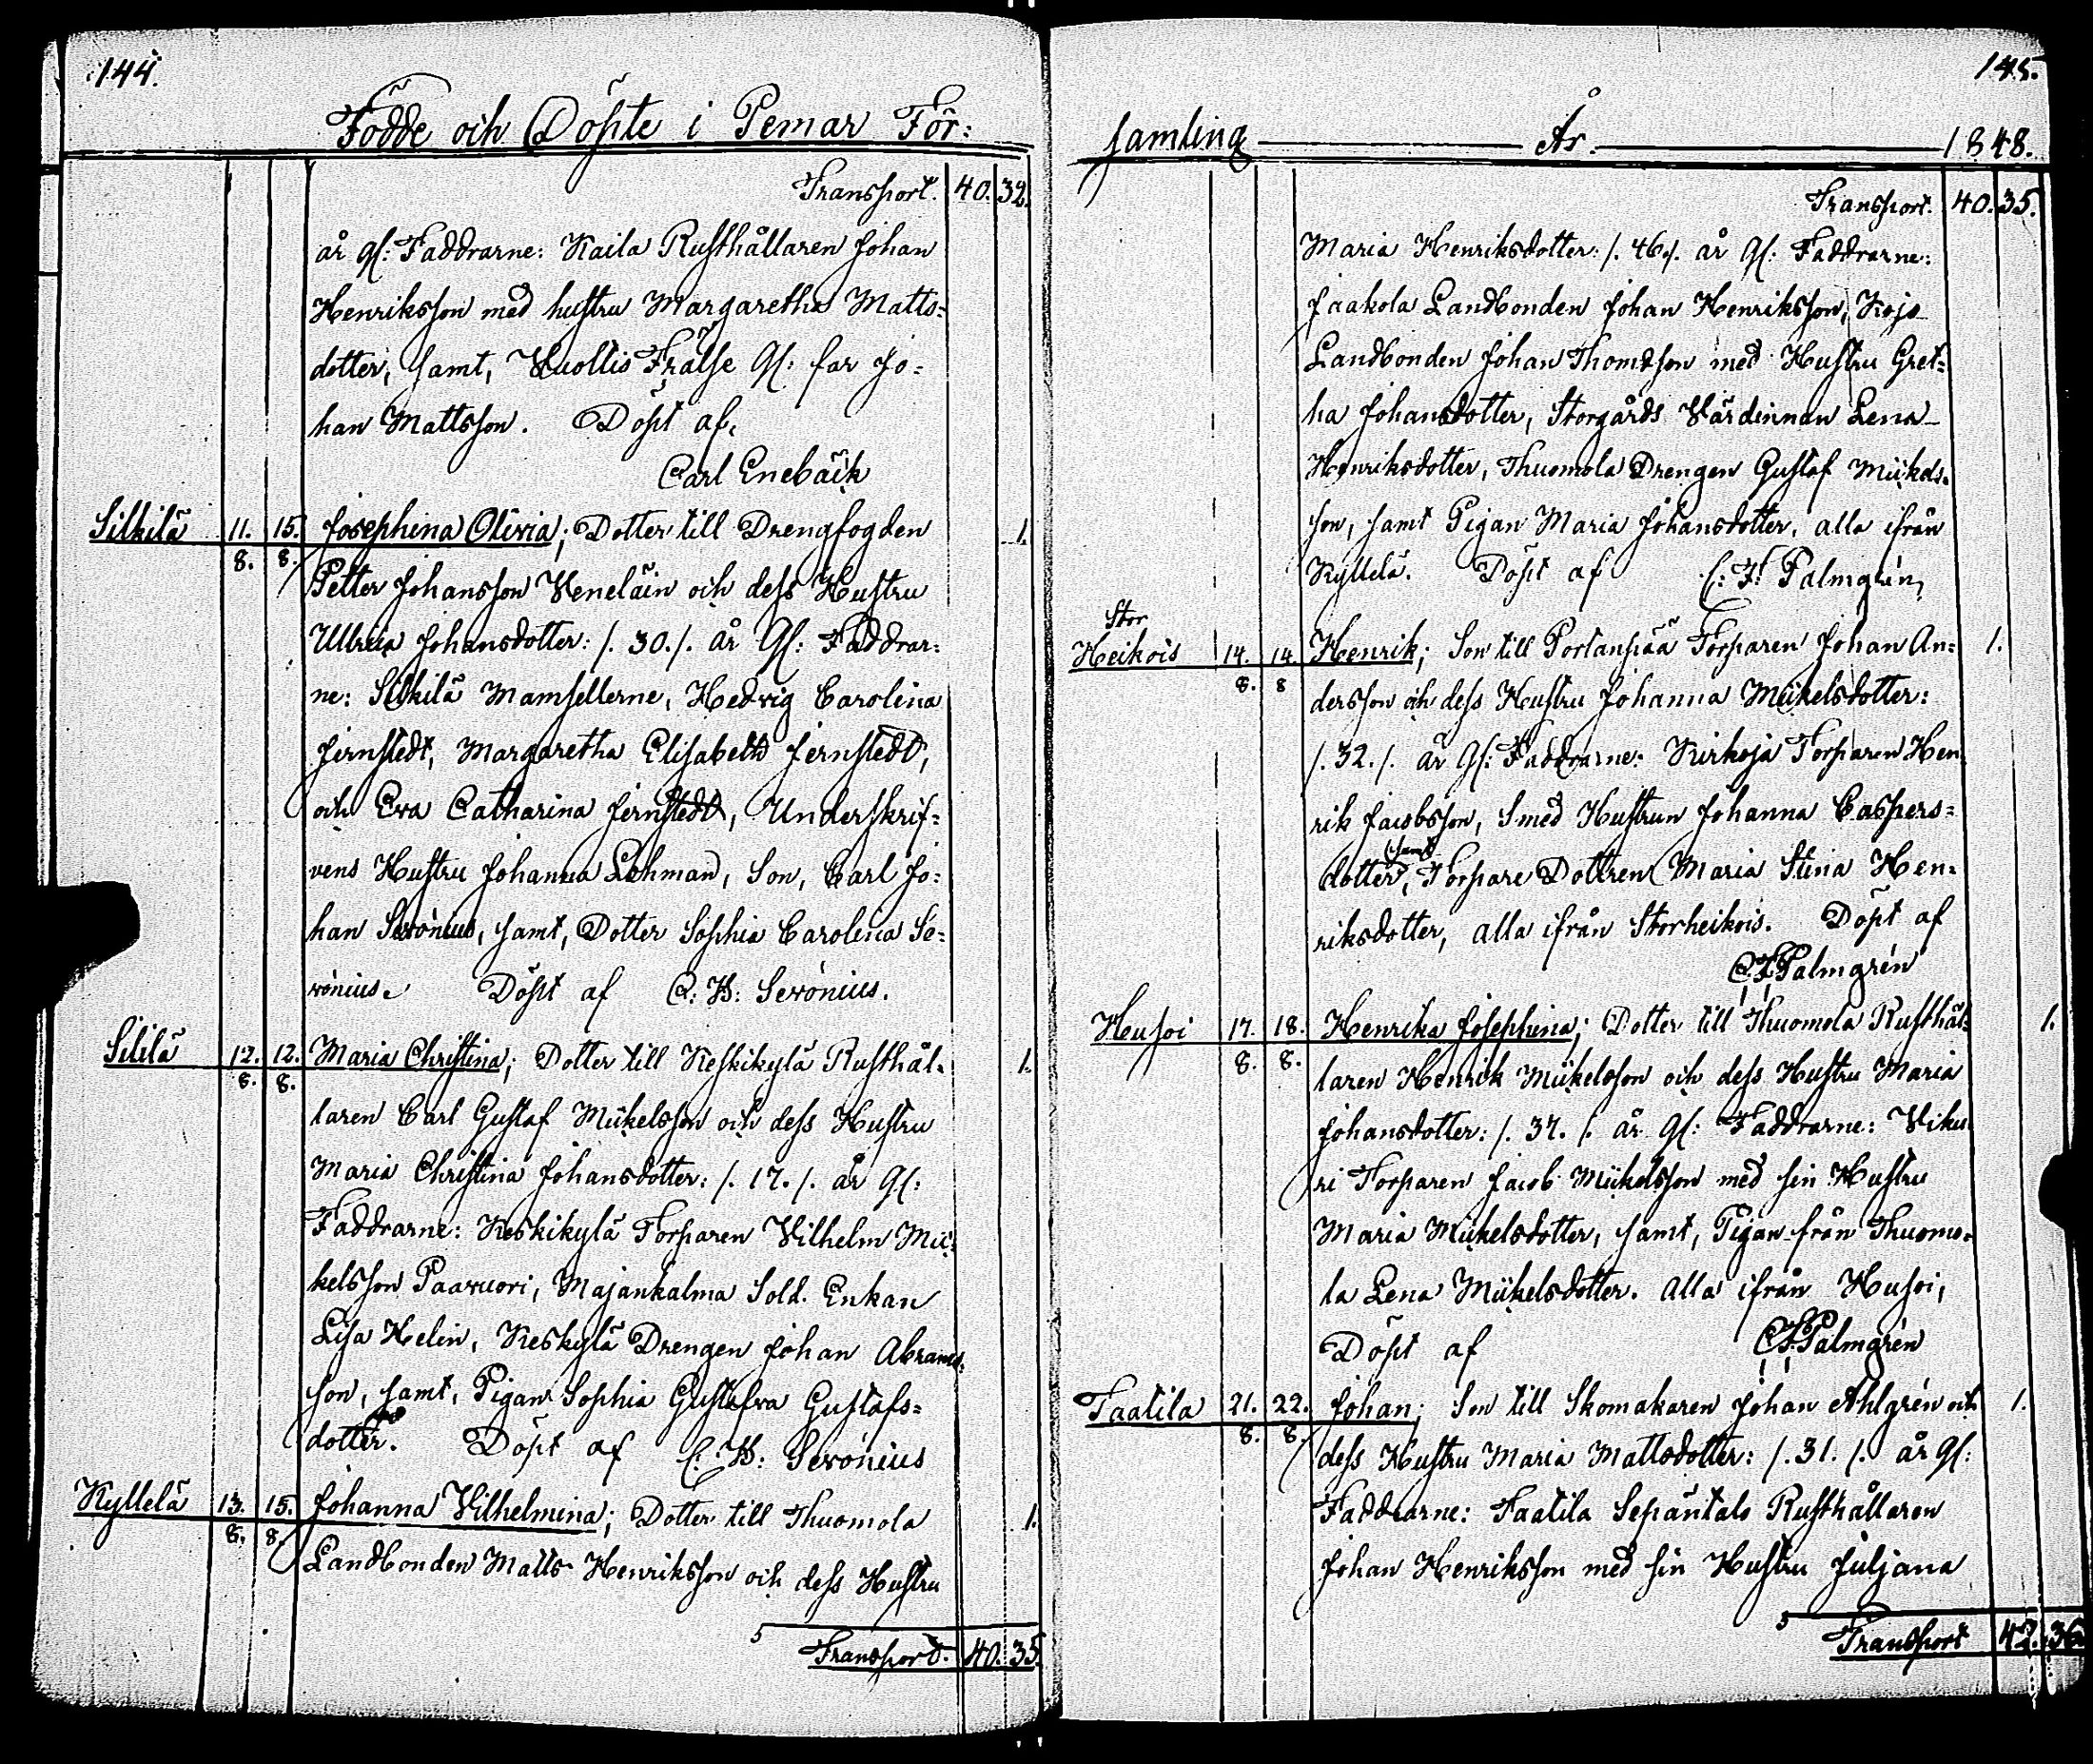 144.
Födde och Döpte i Pemar För:
Transport. 40. 32.
år gl: Faddrarne: Kaila Rusthållaren Johan
Henriksson med hustru Margaretha Matts-
dotter, samt, Vuollis Frälse Gl: far Jo-
han Mattsson. Döpt af,
Carl Enebäck
Silkilä 11. 15. Josephina Olivia; Dotter till Drengfogden 1.
8. 8. Petter Johansson Veneläin och dess Hustru
Ulrica Johansdotter: /. 30. /. år Gl: Faddrar-
ne: Silkilä Mamsellerne, Hedvig Carolina
Jernstedt, Margaretha Elisabeth Jernstedt,
och Eva Catharina Jernstedt, Underskrif-
vens Hustru Johanna Lohman, Son, Carl Jo-
han Serónius, samt, Dotter Sophia Carolina Se-
rónius. Döpt af C: H: Serónius.
Sililä 12. 12. Maria Christina; Dotter till Keskikylä Rusthål- 1.
8. 8. laren Carl Gustaf Mickelsson och dess Hustru
Maria Christina Johansdotter: /. 17. /. år Gl:
Faddrarne: Keskikylä Torparen Vilhelm Mic-
kelsson Paavuori, Majankalma Sold. Enkan
Lisa Helin, Keskylä Drengen Johan Abrams-
son, samt, Pigan Sophia Gustafva Gustafs-
dotter. Döpt af C: H: Serónius
Kyllelä 13. 15. Johanna Vilhelmina; Dotter till Thuomola 1.
8. 8. Landbonden Matts Henriksson och dess Hustru
Transport. 40. 35.
145.
samling År 1848.
Transport. 40. 35.
Maria Henriksdotter: /. 46 /. år Gl: Faddrarne:
Jaakola Landbonden Johan Henriksson, Kojo
Landbonden Johan Thomasson med Hustru Gret-
ha Johansdotter, Storgårds Värdinnan Lena
Henriksdotter, Thuomola Drengen Gustaf Mickels-
son, samt Pigan Maria Johansdotter, alla ifrån
Kyllelä. Döpt af C: F: Palmgrén,
Stor
Heikois 14. 14. Henrik; Son till Portanpää Torparen Johan An- 1.
8. 8 dersson och dess Hustru Johanna Mickelsdotter:
/. 32. /. år Gl: Faddrarne: Kirkoja Torparen Hen-
rik Jacobsson, Smed Hustrun Johanna Caspers-
samt
dotter, Torpare Dottren Maria Stina Hen-
riksdotter, alla ifrån Storheikois. Döpt af
C: F: Palmgrén
Heusoi 17. 18. Henrika Josephina; Dotter till Thuomola Rusthål- 1.
8. 8. laren Henrik Mickelsson och dess Hustru Maria
Johansdotter: /. 37. /. år Gl: Faddrarne: Viku-
ri Torparen Jacob Mickelsson med sin Hustru
Maria Mickelsdotter, samt, Pigan från Thuomo-
la Lena Mickelsdotter. alla ifrån Husoi,
Döpt af C: F: Palmgrén
Taatila 21. 22. Johan; Son till Skomakaren Johan Ahlgrén och 1.
8. 8. dess Hustru Maria Mattsdotter: /. 31. /. år Gl:
Faddrarne: Taatila Sepäntalo Rusthållaren
Johan Henriksson med sin Hustru Juljana
Transport 42. 36.